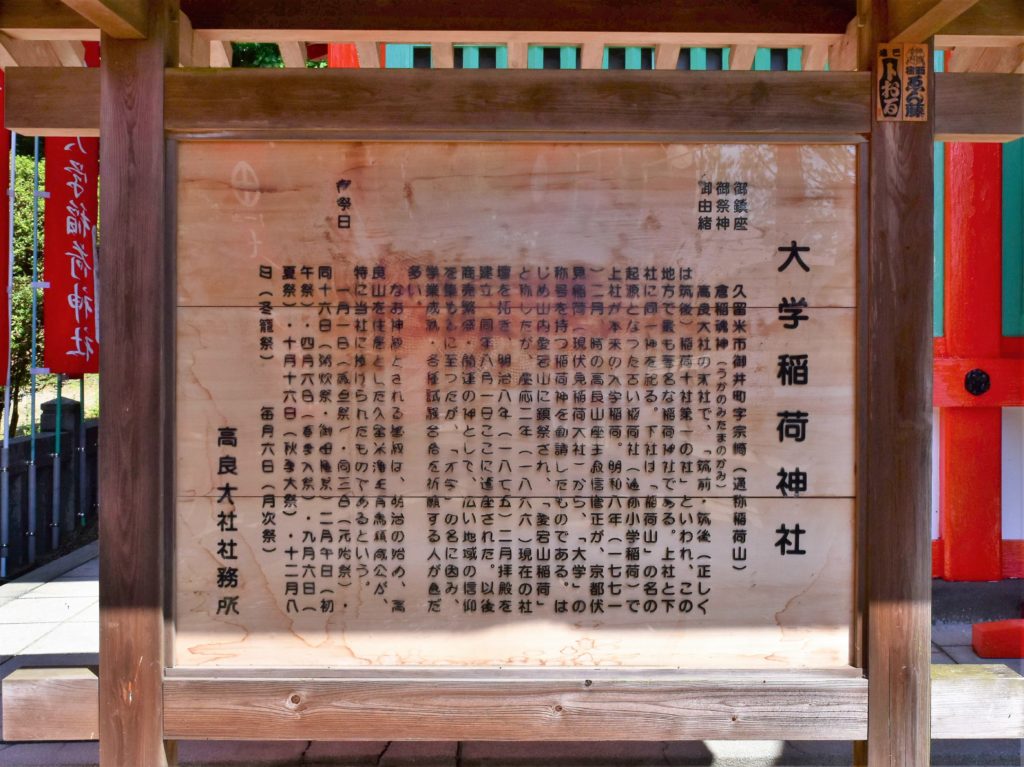 大学稲荷神社
御鎮座 久留米市御井町字宗崎（通称稲荷山）
御祭神 倉稲魂神（うかのみたまのかみ）
御由緒 高良大社の末社で、「筑前・筑後（正しく
は筑後）稲荷十社第一の社」といわれ、この
地方で最も著名な稲荷神社である。上社と下
社に同一神を祀る。下社は「稲荷山」の名の
起源となった古い稲荷社（通称小学稲荷）で
上社が本来の大学稲荷。明和八年（一七七一
）二月、時の高良山座主寂信僧正が、京都伏
見稲荷（現伏見稲荷大社）から、「大学」の
称号を持つ稲荷神を勧請したものである。は
じめ山内愛宕山に鎮祭され、「愛宕山稲荷」
と称したが、慶応二年（一八六六）現在の社
壇を拓き、明治八年（一八七五）二月拝殿を
建立、同年八月一日ここに遷座された。以後
商売繁盛・開運の神として、広い地域の信仰
を集めるに至ったが、「大学」の名に因み、
学業成就・各種試験合格を祈願する人が甚だ
多い。
なお神殿とされる は、明治の始め、高
良山を住居とした久留米藩主有馬頼咸公が、
特に当社に捧げられたものであるという。
御祭日 一月一日（歳旦祭）・同三日（元始祭）・
同十六日（粥炊祭・御田植祭）二月午日（初
午祭）・四月六日（春季大祭）・九月六日（
夏祭）・十月十六日（秋季大祭）・十二月八
日（冬籠祭） 毎月六日（月次祭）
高良大社社務所
大学稲荷神社